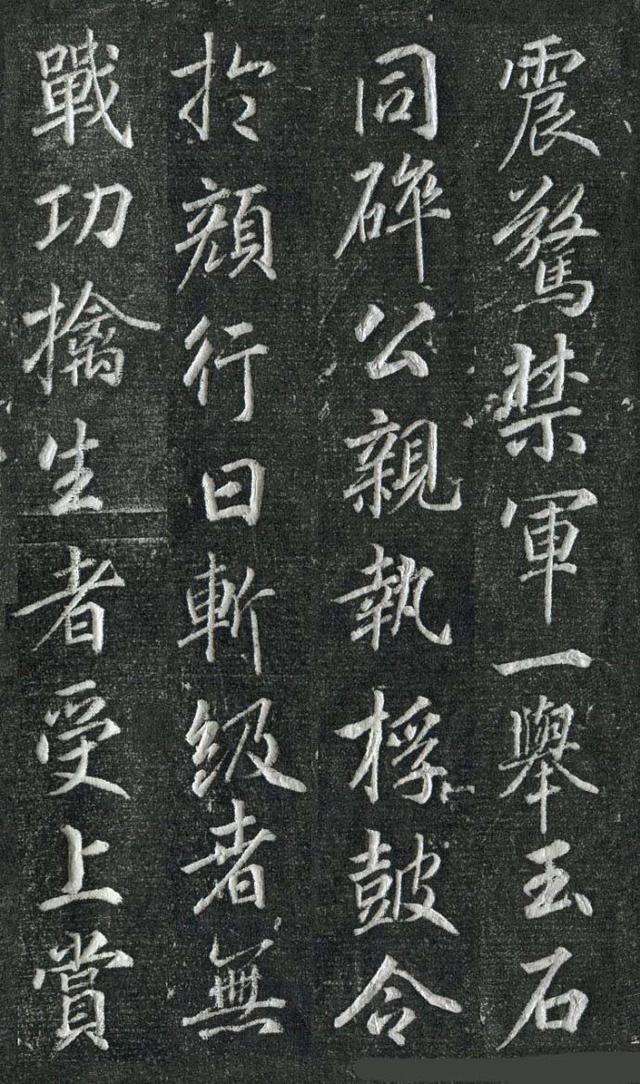 震驚禁軍一舉玉石
同碎公親執桴鼓合
於顔行曰斬級者無
戰功擒生者受上賞